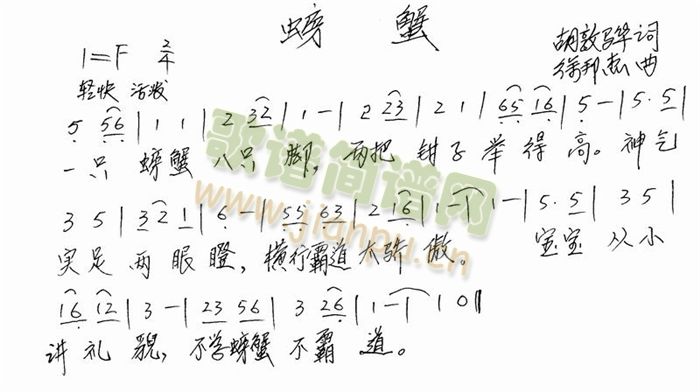 螃 蟹
1=F 2/4 胡敦骅词
轻快 活泼 徐邦杰曲
5 56 | 1 1 | 2 32 | 1 - | 2 23 | 2 1 | 65 16 | 5 - | 5. 5 |
一只 螃蟹 八只 脚, 两把 钳子 举 得 高。神气
3 5 | 32 1 | 6 - | 55 63 | 2 16 | 1 - | 1 - | 5. 5 | 3 5 |
实足 两 眼 瞪, 横行霸道 太骄 傲。 宝宝 从小
16 12 | 3 - | 23 56 | 3 26 | 1 - | 1 0 ||
讲 礼 貌, 不学螃蟹 不霸 道。
歌谱简谱网
www.jianpu.cn